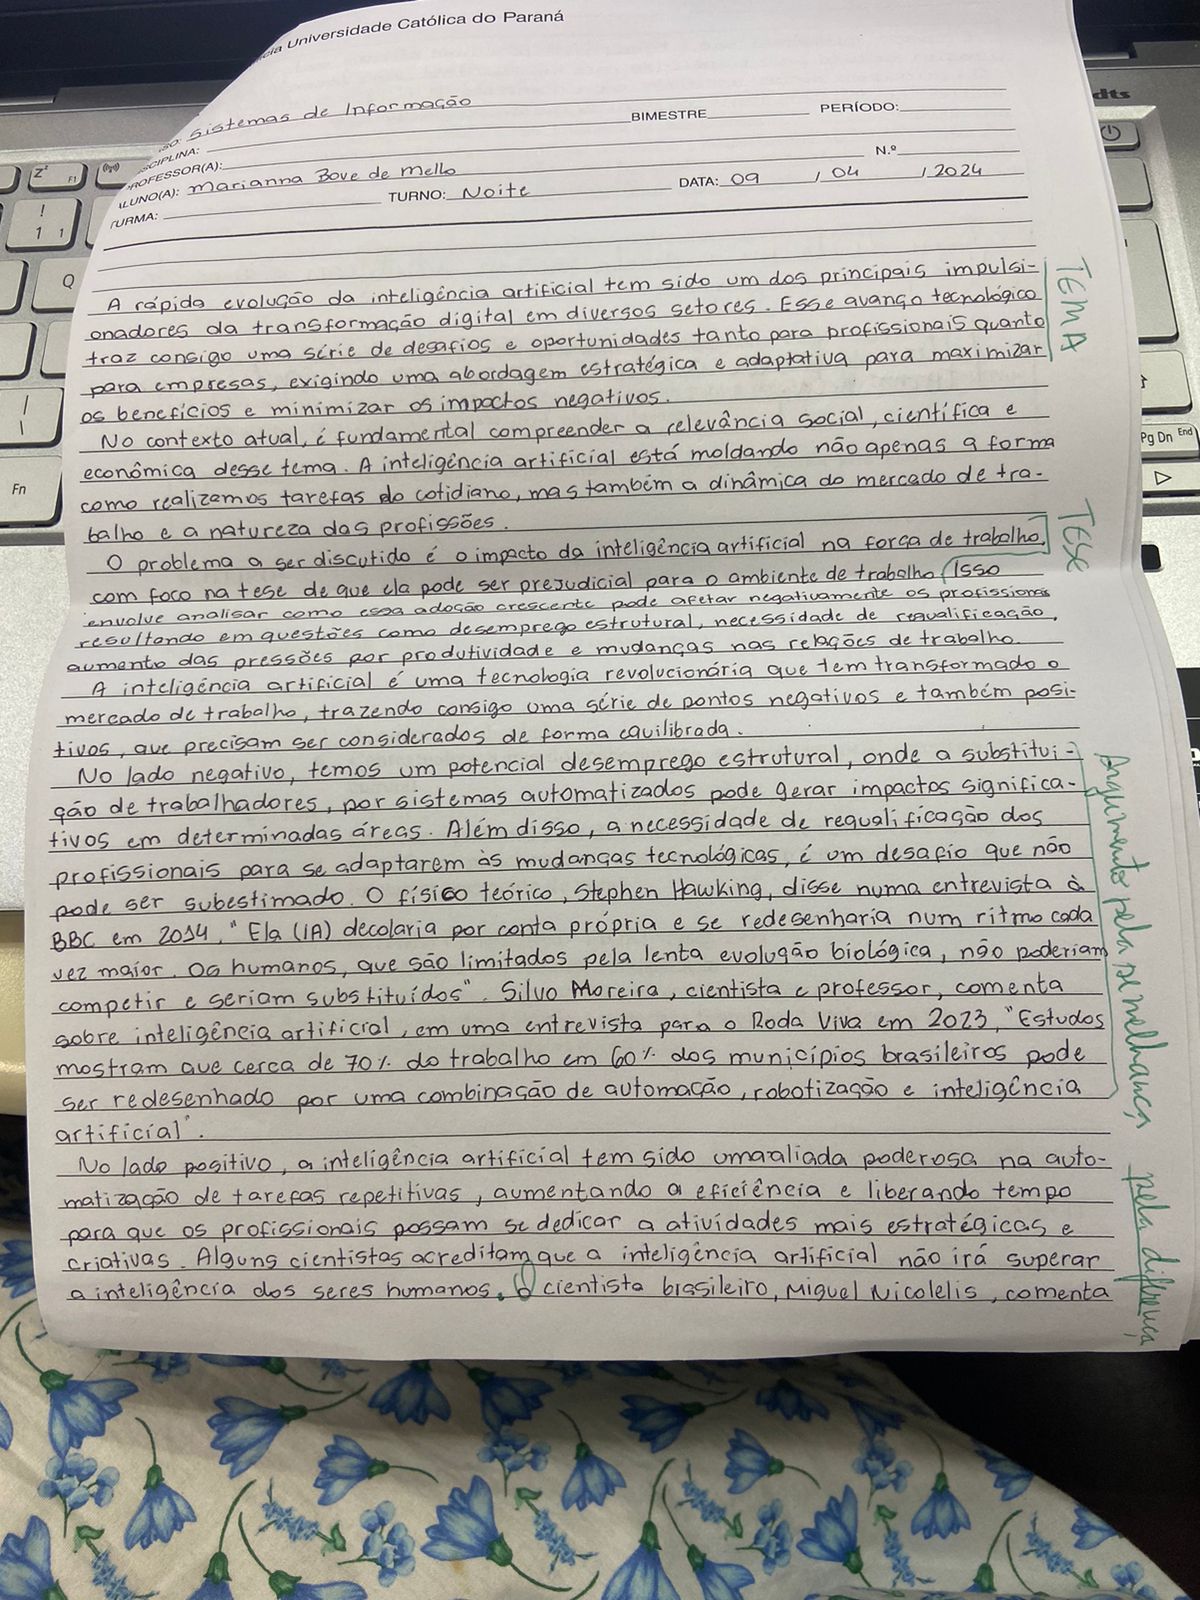 cia Universidade Católica do Paraná
SO: Sistemas de Informação
CIPLINA: BIMESTRE PERÍODO:
PROFESSOR(A):
LUNO(A): Marianna Bove de Mello N.º
TURMA: TURNO: Noite DATA: 09 / 04 / 2024
A rápida evolução da inteligência artificial tem sido um dos principais impulsi-
onadores da transformação digital em diversos setores. Esse avanço tecnológico
traz consigo uma série de desafios e oportunidades tanto para profissionais quanto
para empresas, exigindo uma abordagem estratégica e adaptativa para maximizar
os benefícios e minimizar os impactos negativos.
TEMA
No contexto atual, é fundamental compreender a relevância social, científica e
econômica desse tema. A inteligência artificial está moldando não apenas a forma
como realizamos tarefas do cotidiano, mas também a dinâmica do mercado de tra-
balho e a natureza das profissões.
O problema a ser discutido é o impacto da inteligência artificial na força de trabalho,
com foco na tese de que ela pode ser prejudicial para o ambiente de trabalho. Isso
envolve analisar como essa adoção crescente pode afetar negativamente os profissionais
resultando em questões como desemprego estrutural, necessidade de requalificação,
aumento das pressões por produtividade e mudanças nas relações de trabalho.
TESE
A inteligência artificial é uma tecnologia revolucionária que tem transformado o
mercado de trabalho, trazendo consigo uma série de pontos negativos e também posi-
tivos, que precisam ser considerados de forma equilibrada.
No lado negativo, temos um potencial desemprego estrutural, onde a substitui-
ção de trabalhadores, por sistemas automatizados pode gerar impactos significa-
tivos em determinadas áreas. Além disso, a necessidade de requalificação dos
profissionais para se adaptarem às mudanças tecnológicas, é um desafio que não
pode ser subestimado. O físico teórico, Stephen Hawking, disse numa entrevista à
BBC em 2014, "Ela (IA) decolaria por conta própria e se redesenharia num ritmo cada
vez maior. Os humanos, que são limitados pela lenta evolução biológica, não poderiam
competir e seriam substituídos". Silvo Moreira, cientista e professor, comenta
sobre inteligência artificial, em uma entrevista para o Roda Viva em 2023, "Estudos
mostram que cerca de 70% do trabalho em 60% dos municípios brasileiros pode
ser redesenhado por uma combinação de automação, robotização e inteligência
artificial".
Argumento pela semelhança
No lado positivo, a inteligência artificial tem sido uma aliada poderosa na auto-
matização de tarefas repetitivas, aumentando a eficiência e liberando tempo
para que os profissionais possam se dedicar a atividades mais estratégicas e
criativas. Alguns cientistas acreditam que a inteligência artificial não irá superar
a inteligência dos seres humanos. O cientista brasileiro, Miguel Nicolelis, comenta
pela diferença
dts
Z F1
! 1 1
Q
Fn
Pg Dn End